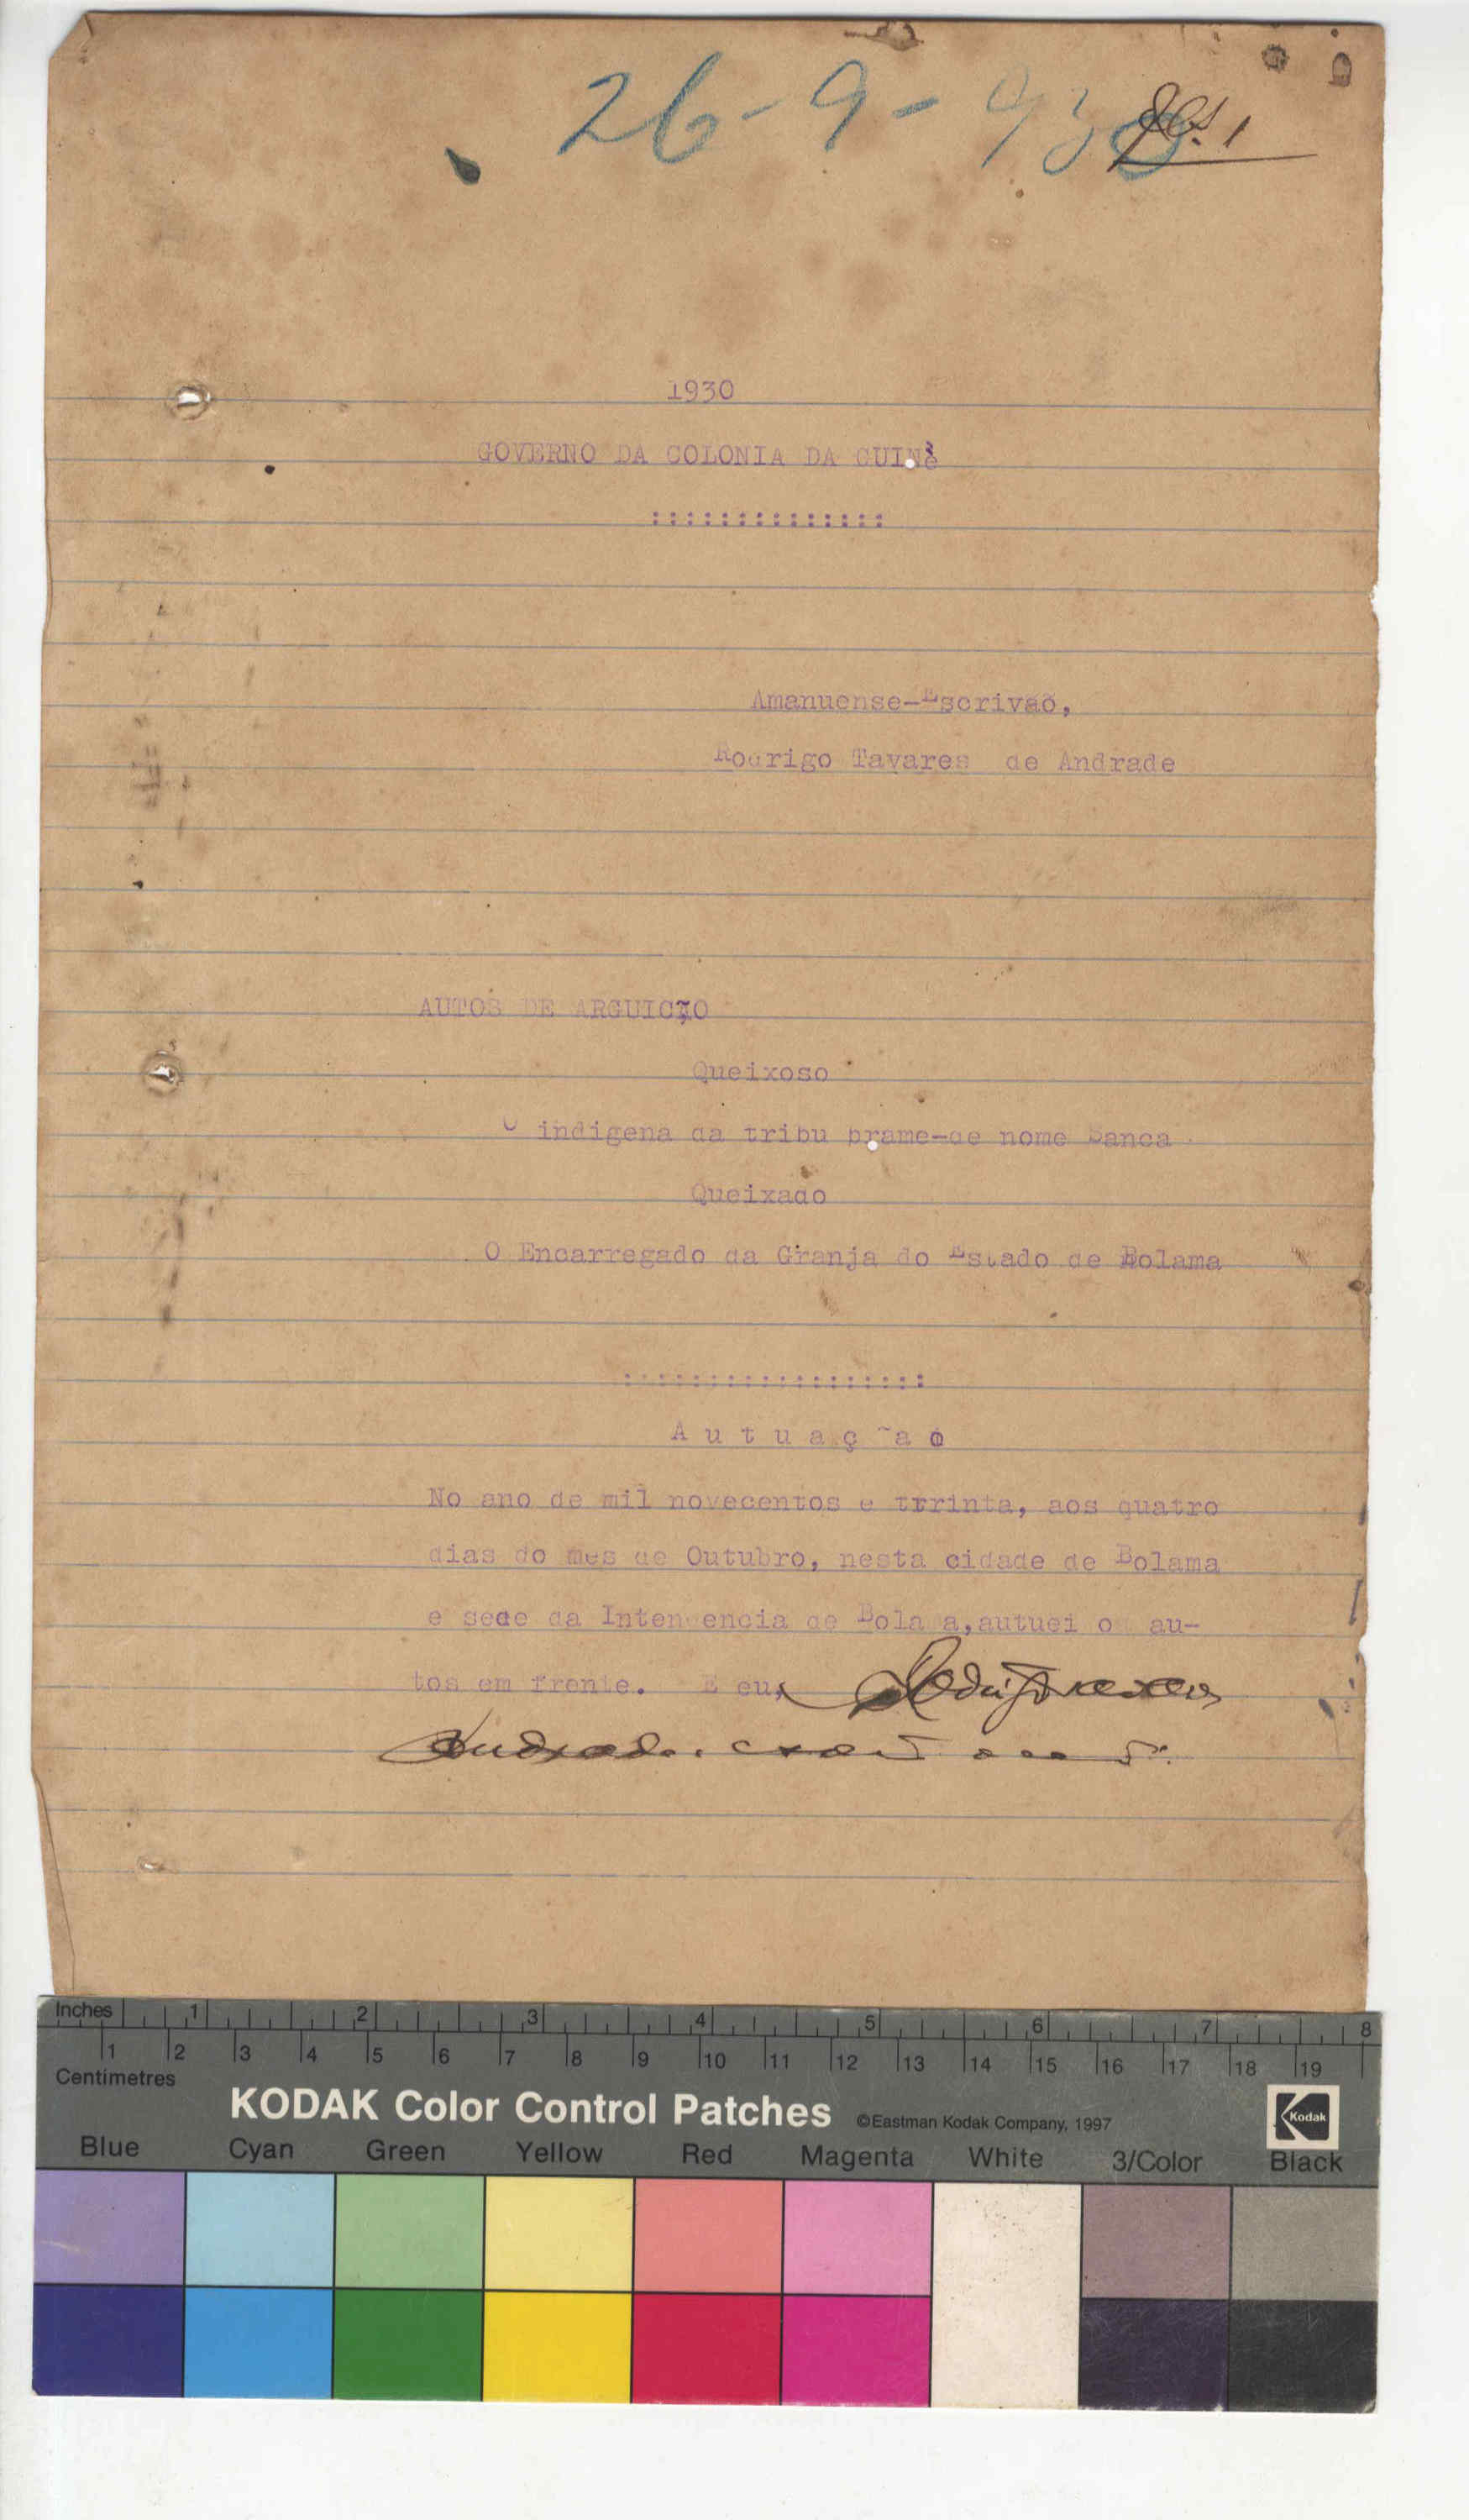 26-9-930
fls. 1
1930
GOVERNO DA COLONIA DA GUINè
::::::::::::::
Amanuense-Escrivaõ,
Rodrigo Tavares de Andrade
AUTOS DE ARGUIÇÃO
Queixoso
O indigena da tribu brame-de nome Banca
Queixado
O Encarregado da Granja do Estado de Bolama
::::::::::::::::::
A u t u a ç ~a o
No ano de mil novecentos e trrinta, aos quatro
dias do mes de Outubro, nesta cidade de Bolama
e sede da Intendencia de Bolama,autuei os au-
tos em frente. E eu, Rodrigo Tavares
Andrade.
Inches 1 2 3 4 5 6 7 8
1 2 3 4 5 6 7 8 9 10 11 12 13 14 15 16 17 18 19
Centimetres
KODAK Color Control Patches ©Eastman Kodak Company, 1997 Kodak
Blue Cyan Green Yellow Red Magenta White 3/Color Black